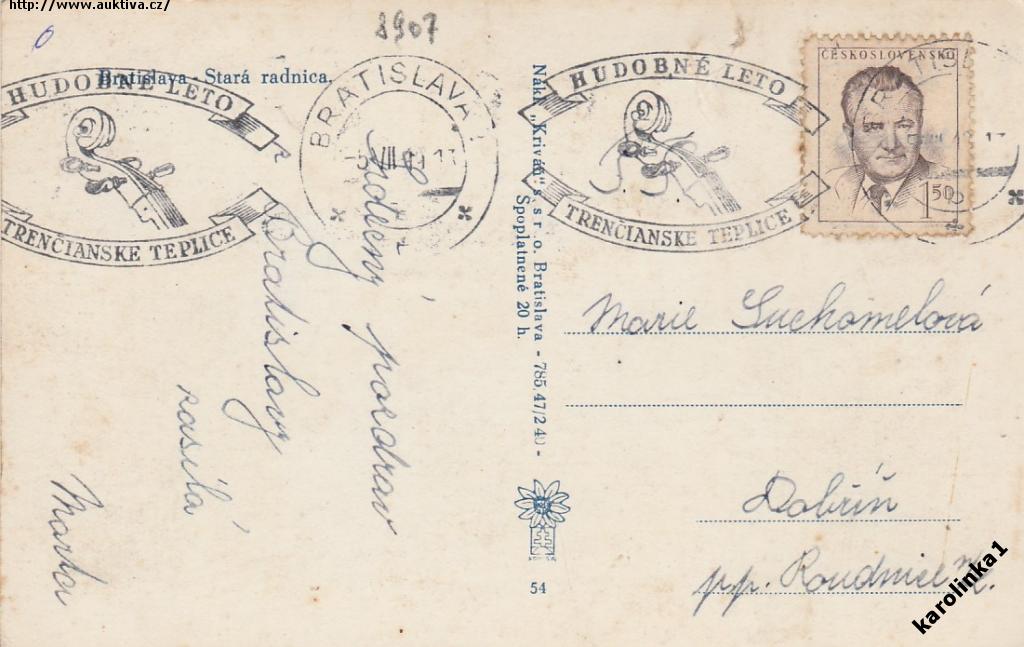 http://www.auktiva.cz/
8907
Bratislava - Stará radnica.
HUDOBNÉ LETO
TRENČIANSKE TEPLICE
BRATISLAVA
VII 49
HUDOBNÉ LETO
TRENČIANSKE TEPLICE
ČESKOSLOVENSKO
1 50
Srdečný pozdrav
z Bratislavy
zasílá
Marta
Nákl. „Kriváň“ s. s r. o. Bratislava - 785.47/2 40 -
Spoplatnené 20 h.
54
Marie Suchomelová
Dobříň
pp. Roudnice n.
karolinka1